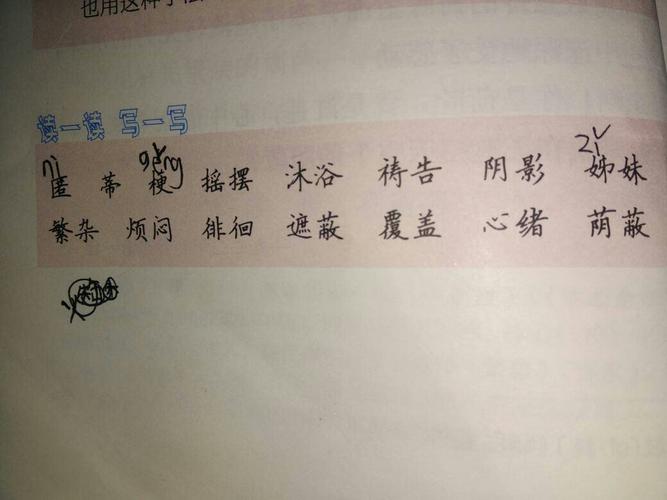 也用这种手法
读一读 写一写
nì gěng zǐ
匿 蒂 梗 摇摆 沐浴 祷告 阴影 姊妹
繁杂 烦闷 徘徊 遮蔽 覆盖 心绪 荫蔽